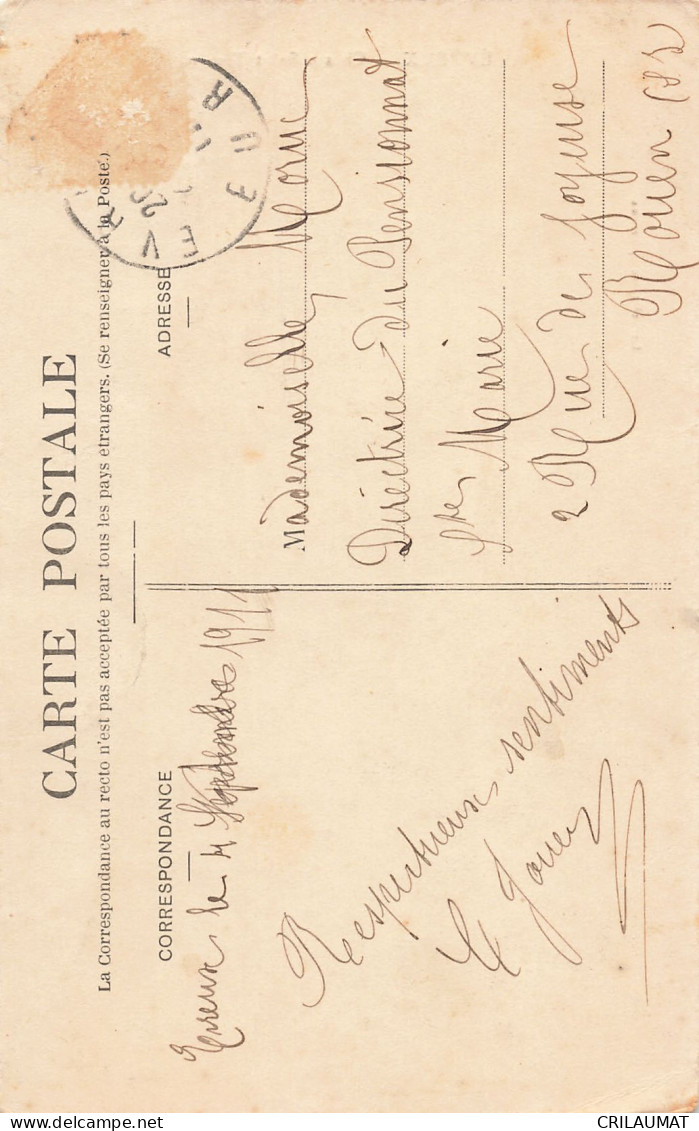 CARTE POSTALE
La Correspondance au recto n'est pas acceptée par tous les pays étrangers. (Se renseigner à la Poste.)
CORRESPONDANCE
Evreux le 4 Septembre 1911
Respectueux sentiments
ADRESSE
Mademoiselle
Directrice du Pensionnat
Ste Marie
2 Rue de Joyeuse
Rouen
EVR
EUR
CRILAUMAT